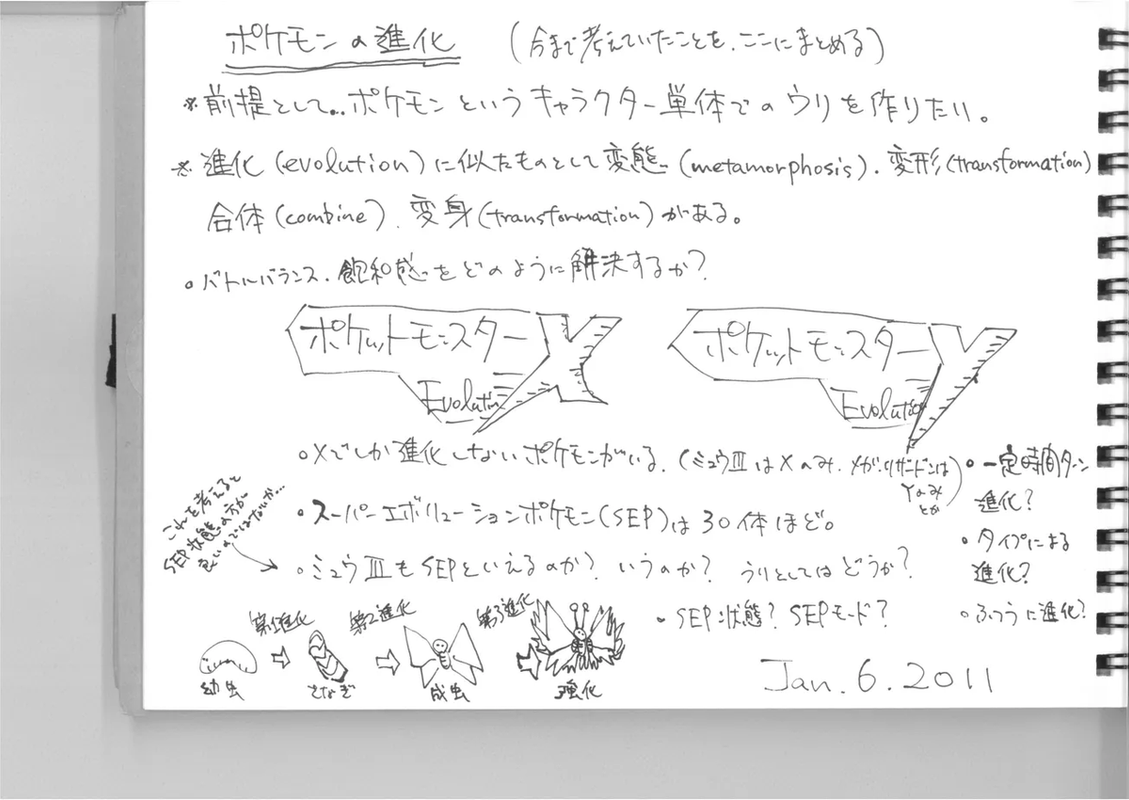 ポケモンの進化 (今まで考えていたことを、ここにまとめる)
※前提として…ポケモンというキャラクター単体でのウリを作りたい。
※進化(evolution)に似たものとして変態(metamorphosis)、変形(transformation)
合体(combine)、変身(transformation)がある。
・バトルバランス、飽和感をどのように解決するか?
ポケットモンスター X
Evolution
ポケットモンスター Y
Evolution
・Xでしか進化しないポケモンがいる。(ミュウⅢはXのみ、メガリザードンは
Yのみ
とか)
・スーパーエボリューションポケモン(SEP)は30体ほど。
・ミュウⅢもSEPといえるのか? いうのか? うりとしてはどうか?
これを考えると
SEP状態の方が
良いのではないか…
・SEP状態? SEPモード?
・一定時間ターン
進化?
・タイプによる
進化?
・ふつうに進化?
第1進化
第2進化
第3進化
幼虫
さなぎ
成虫
強化
Jan. 6. 2011